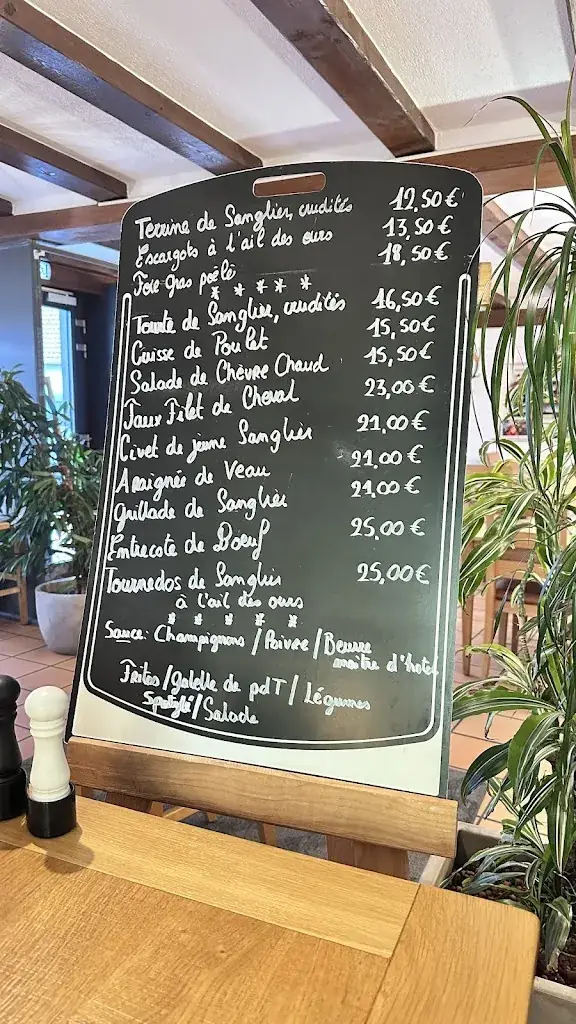 Terrine de Sanglier, crudités 12,50€
Escargots à l'ail des ours 13,50€
Foie gras poêlé 18,50€
* * * * *
Tourte de Sanglier, crudités 16,50€
Cuisse de Poulet 15,50€
Salade de Chèvre Chaud 15,50€
Faux Filet de Cheval 23,00€
Civet de jeune Sanglier 21,00€
Araignée de Veau 21,00€
Grillade de Sanglier 21,00€
Entrecote de Boeuf 25,00€
Tournedos de Sanglier 25,00€
à l'ail des ours
* * * * *
Sauce: Champignons / Poivre / Beurre
maître d'hotel
Frites / galette de pdT / Légumes
Spaetzle / Salade